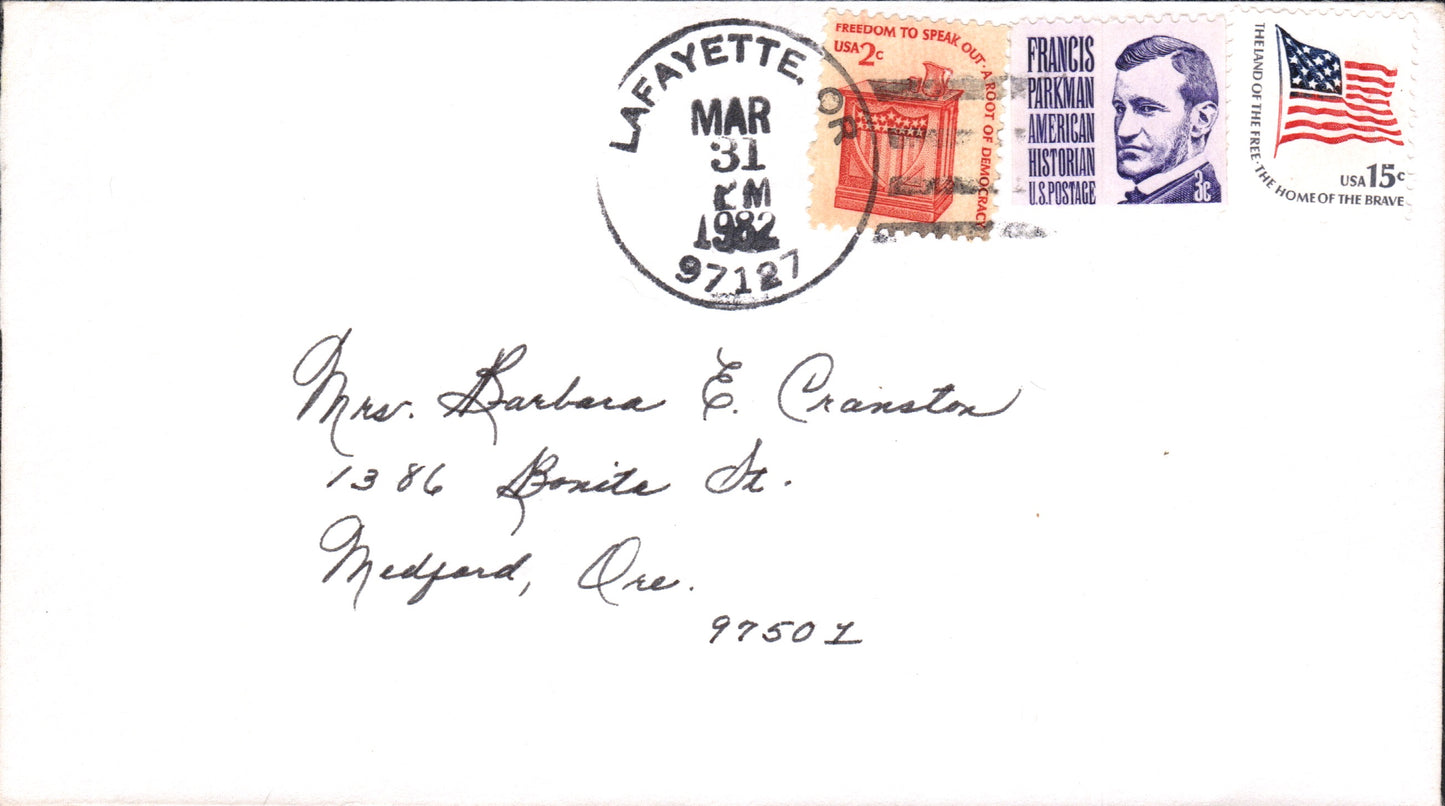 LAFAYETTE, OR
MAR
31
PM
1982
97127
FREEDOM TO SPEAK OUT · A ROOT OF DEMOCRACY
USA 2c
FRANCIS
PARKMAN
AMERICAN
HISTORIAN
U.S. POSTAGE
3c
THE LAND OF THE FREE · THE HOME OF THE BRAVE
USA 15c
Mrs. Barbara E. Cranston
1386 Bonita St.
Medford, Ore.
97501